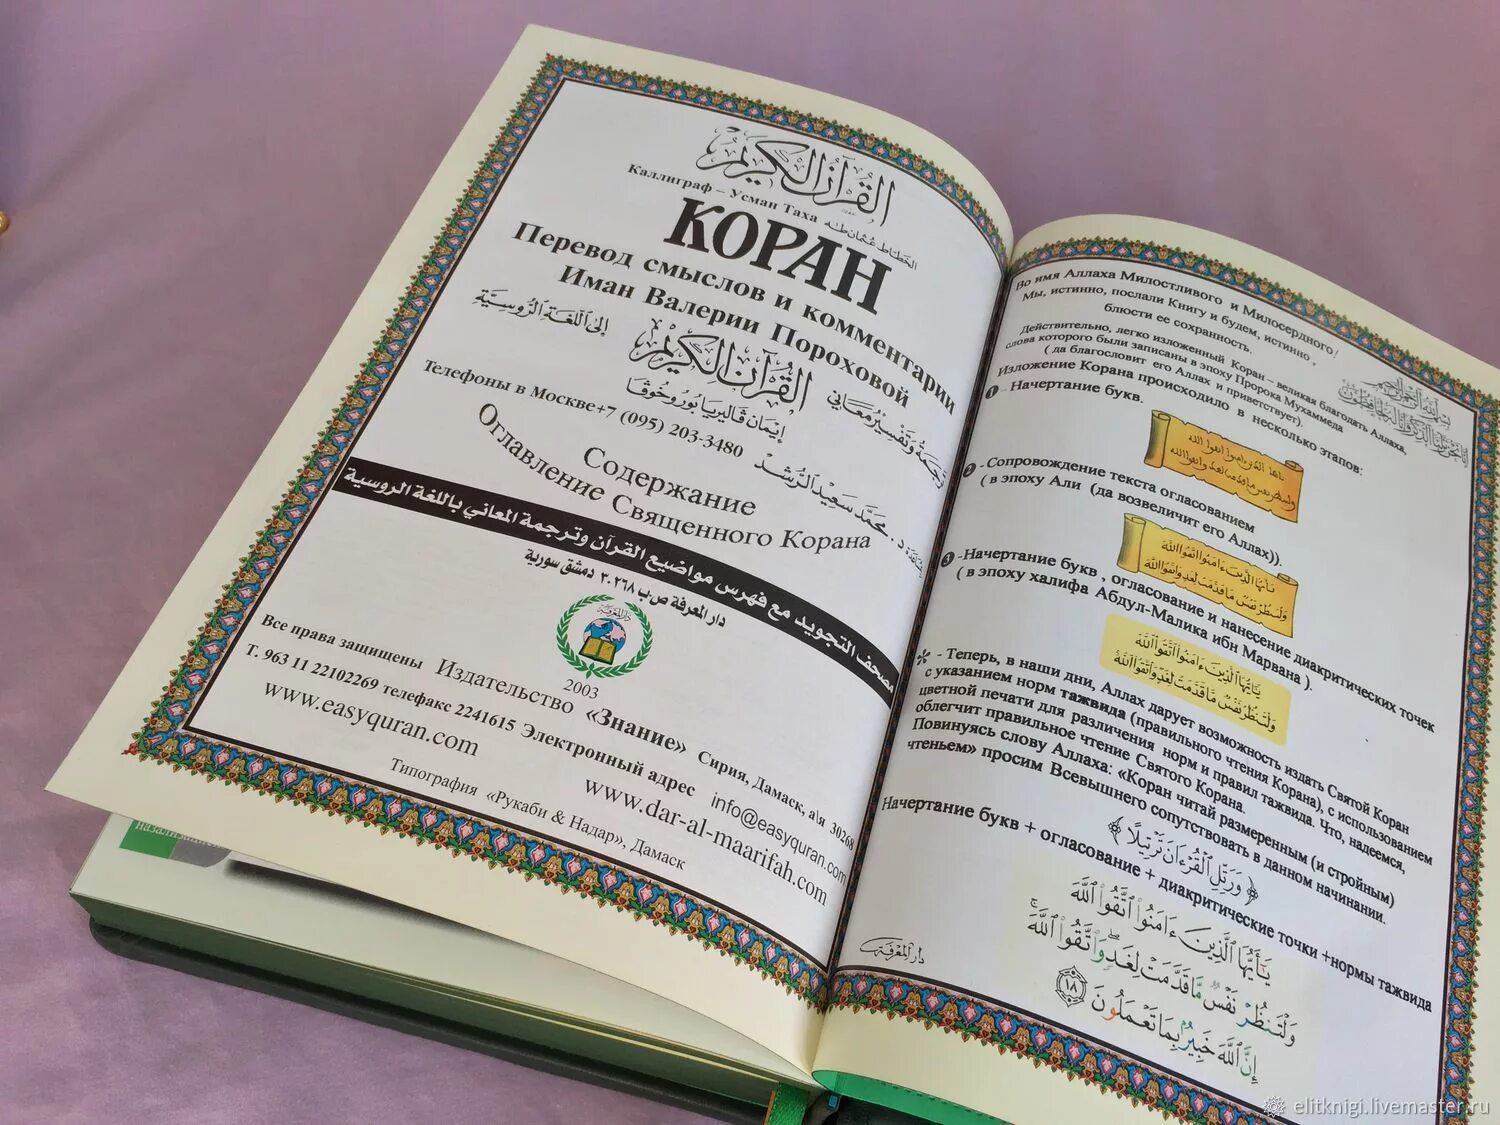 القرآن الكريم
Каллиграф – Усман Таха
الخطاط عثمان طه
КОРАН
Перевод смыслов и комментарии
Иман Валерии Пороховой
ترجمة وتفسير معاني
القرآن الكريم
إلى اللغة الروسية
إيمان فاليريا بوروخوفا
د. محمد سعيد الرشد
Телефоны в Москве+7 (095) 203-3480
Содержание
Оглавление Священного Корана
مصحف التجويد مع فهرس مواضيع القرآن وترجمة المعاني باللغة الروسية
دار المعرفة ص.ب ٣٠٢٦٨ دمشق سورية
2003
Все права защищены Издательство «Знание» Сирия, Дамаск, а\я 30268
Т. 963 11 22102269 телефакс 2241615 Электронный адрес info@easyquran.com
www.easyquran.com www.dar-al-maarifah.com
Типография «Рукаби & Надар», Дамаск
назализ
Во имя Аллаха Милостливого и Милосердного!
Мы, истинно, послали Книгу и будем, истинно,
блюсти ее сохранность.
بسم الله الرحمن الرحيم
إنا نحن نزلنا الذكر وإنا له لحافظون
Действительно, легко изложенный Коран – великая благодать Аллаха,
слова которого были записаны в эпоху Пророка Мухаммеда
( да благословит его Аллах и приветствует).
Изложение Корана происходило в несколько этапов:
1 - Начертание букв.
2 - Сопровождение текста огласованием
( в эпоху Али (да возвеличит его Аллах)).
3 -Начертание букв , огласование и нанесение диакритических точек
( в эпоху халифа Абдул-Малика ибн Марвана ).
يَٰٓأَيُّهَا ٱلَّذِينَ ءَامَنُوا۟ ٱتَّقُوا۟ ٱللَّهَ
وَلْتَنظُرْ نَفْسٌ مَّا قَدَّمَتْ لِغَدٍ وَٱتَّقُوا۟ ٱللَّهَ
* - Теперь, в наши дни, Аллах дарует возможность издать Святой Коран
с указанием норм тажвида (правильного чтения Корана), с использованием
цветной печати для различения норм и правил тажвида. Что, надеемся,
облегчит правильное чтение Святого Корана.
Повинуясь слову Аллаха: «Коран читай размеренным (и стройным)
чтеньем» просим Всевышнего сопутствовать в данном начинании.
﴿ وَرَتِّلِ ٱلْقُرْءَانَ تَرْتِيلًا ﴾
Начертание букв + огласование + диакритические точки +нормы тажвида
يَٰٓأَيُّهَا ٱلَّذِينَ ءَامَنُوا۟ ٱتَّقُوا۟ ٱللَّهَ
وَلْتَنظُرْ نَفْسٌ مَّا قَدَّمَتْ لِغَدٍ وَٱتَّقُوا۟ ٱللَّهَ
إِنَّ ٱللَّهَ خَبِيرٌۢ بِمَا تَعْمَلُونَ ١٨
دار المعرفة
elitknigi.livemaster.ru